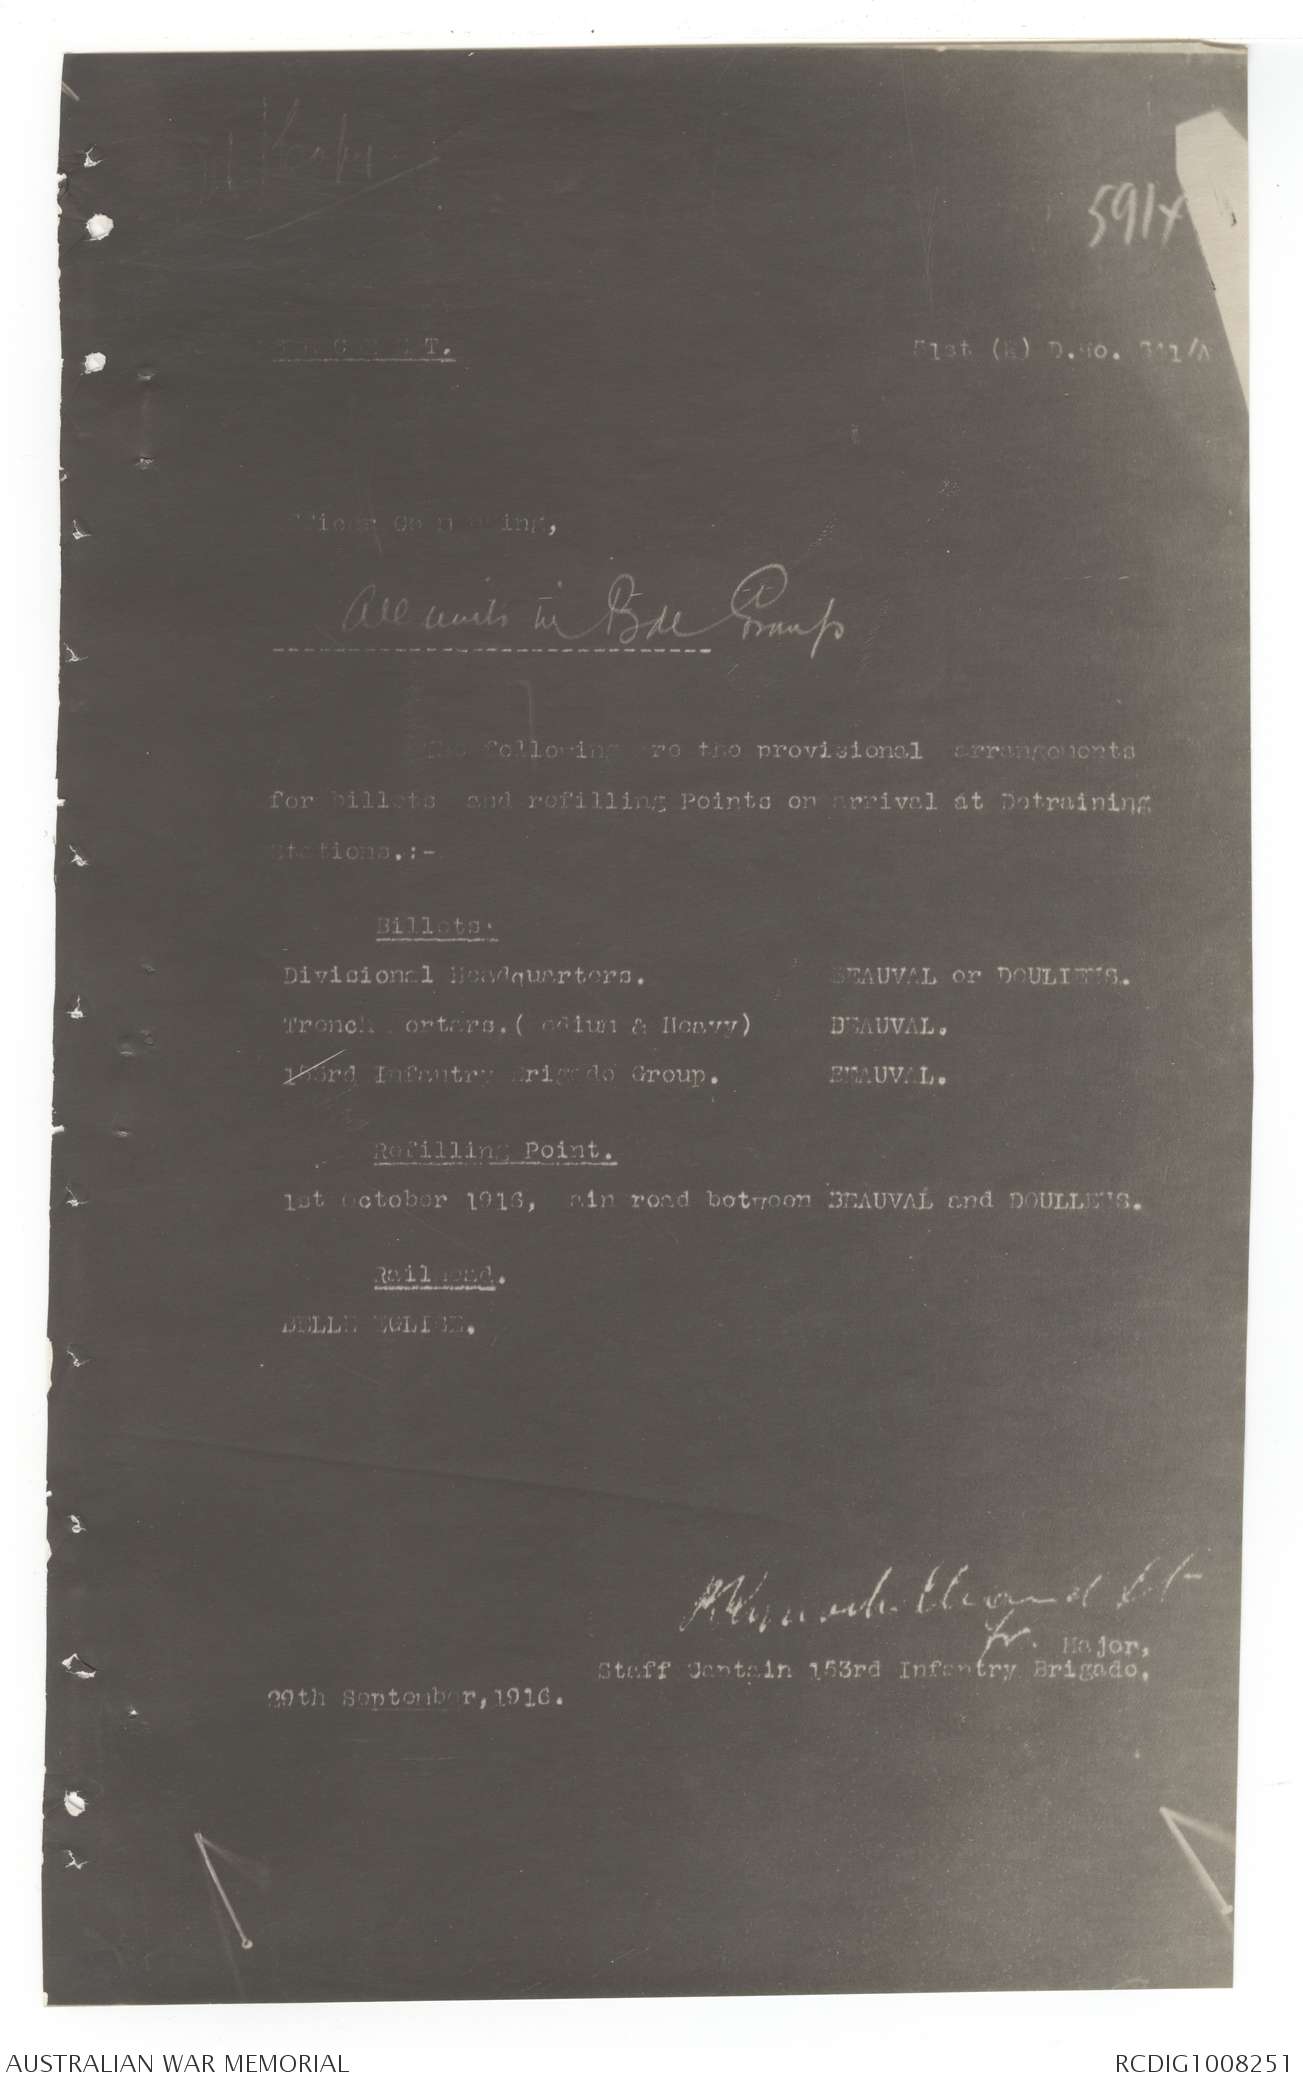 591x
51st (H) D.No.
Officer Commanding,
All units in Bde Group
The following are the provisional arrangements
for billets and refilling Points on arrival at Detraining
Stations.:-
Billets.
Divisional Headquarters. BEAUVAL or DOULLENS.
Trench Mortars.(Medium & Heavy) BEAUVAL.
153rd Infantry Brigade Group. BEAUVAL.
Refilling Point.
1st October 1916, Main road between BEAUVAL and DOULLENS.
Railhead.
BELLE EGLISE.
Lt
for Major,
Staff Captain 153rd Infantry Brigade,
29th September,1916.
AUSTRALIAN WAR MEMORIAL RCDIG1008251